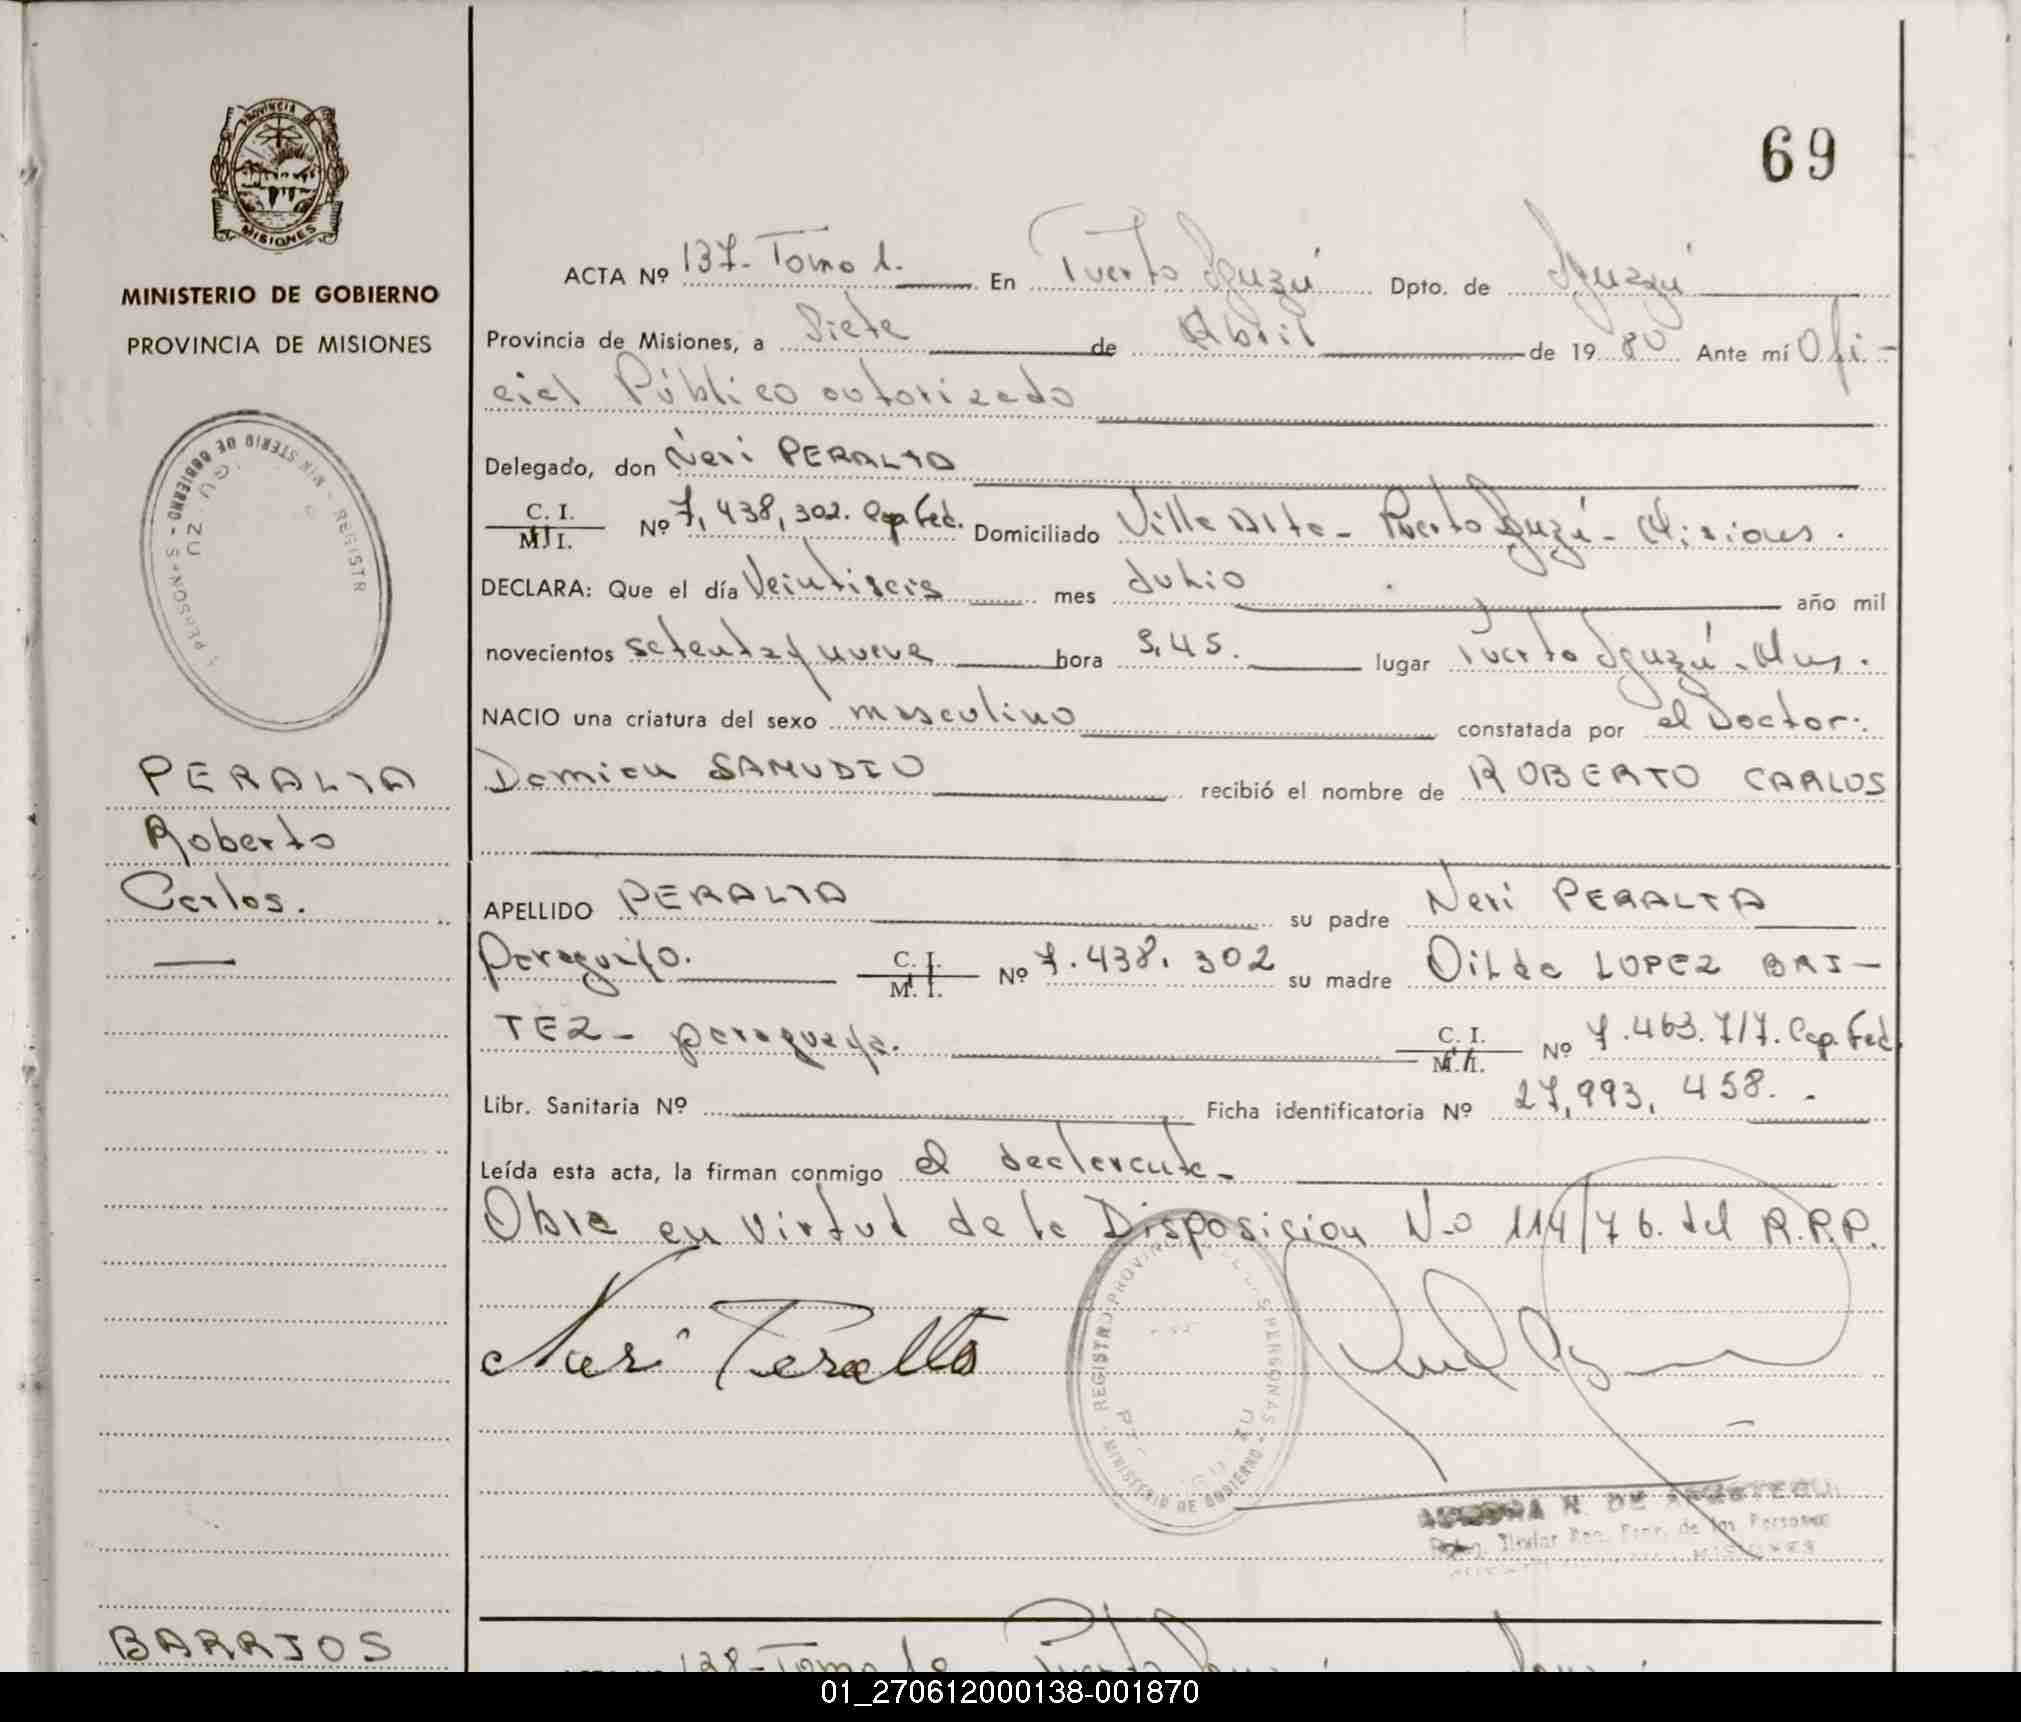 69
PROVINCIA DE
MISIONES
MINISTERIO DE GOBIERNO
PROVINCIA DE MISIONES
ACTA Nº 137- Tomo 1. En Puerto Iguazú Dpto. de Iguazú
Provincia de Misiones, a Siete de Abril de 1980 Ante mí Ofi-
cial Público autorizado
Delegado, don Neri PERALTA
C. I. M. I. Nº 7,438,302. Cap. Fed. Domiciliado Villa Alta - Puerto Iguazú - Misiones.
DECLARA: Que el día Veintiseis mes Julio año mil
novecientos setenta y nueve hora 3,45. lugar Puerto Iguazú - Mnes.
NACIO una criatura del sexo masculino constatada por el Doctor:
Damian SAMUDIO recibió el nombre de ROBERTO CARLOS
PERALTA
Roberto
Carlos.
APELLIDO PERALTA su padre Neri PERALTA
paraguayo. C. I. M. I. Nº 7.438.302 su madre Oilda LOPEZ BRI-
TEZ - paraguaya. C. I. M. I. Nº 7.463.717. Cap. Fed.
Libr. Sanitaria Nº Ficha identificatoria Nº 27,993,458.
Leída esta acta, la firman conmigo el declarante-
Obra en virtud de la Disposicion N-o 114/76. del R.P.P.
Neri Peralta
REGISTRO PROVINCIAL DE LAS PERSONAS
MINISTERIO DE GOBIERNO
BARRIOS
138-Tomo 1º
01_270612000138-001870